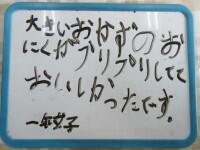 大きいおかずのお
にくがプリプリしてて
おいしかったです。
一年女子